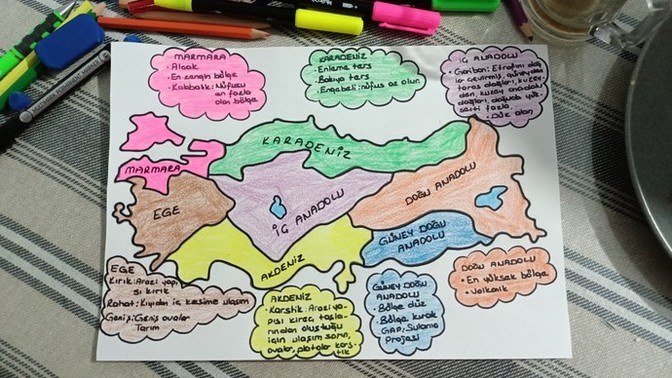 MARMARA
• Alçak
• En zengin bölge
• Kalabalık: Nüfusu
en fazla
olan bölge
KARADENİZ
• Enleme ters
• Bakıya ters
• Engebeli: nüfus az olur.
İÇ ANADOLU
• Gariban: Etrafını dağ
lar çevirmiş, güneyden
toros dağları, kuzey-
den, kuzey anadolu
dağları, doğuda yük
selti fazla.
• Düz alan
KARADENİZ
MARMARA
EGE
İÇ ANADOLU
DOĞU ANADOLU
GÜNEY DOĞU
ANADOLU
AKDENİZ
EGE
Kırık: Arazi yapı
sı kırık
Rahat: Kıyıdan iç kesime ulaşım
Geniş: Geniş ovalar
Tarım
AKDENİZ
• Karstik: Arazi ya-
pısı kireç taşla-
rından oluştuğu
için ulaşım zorun,
ovalar, platolar kars-
tik
GÜNEY DOĞU
ANADOLU
• Bölge düz
• Bölge kurak
GAP, Sulama
Projesi
DOĞU ANADOLU
• En yüksek bölge
• Volkanik